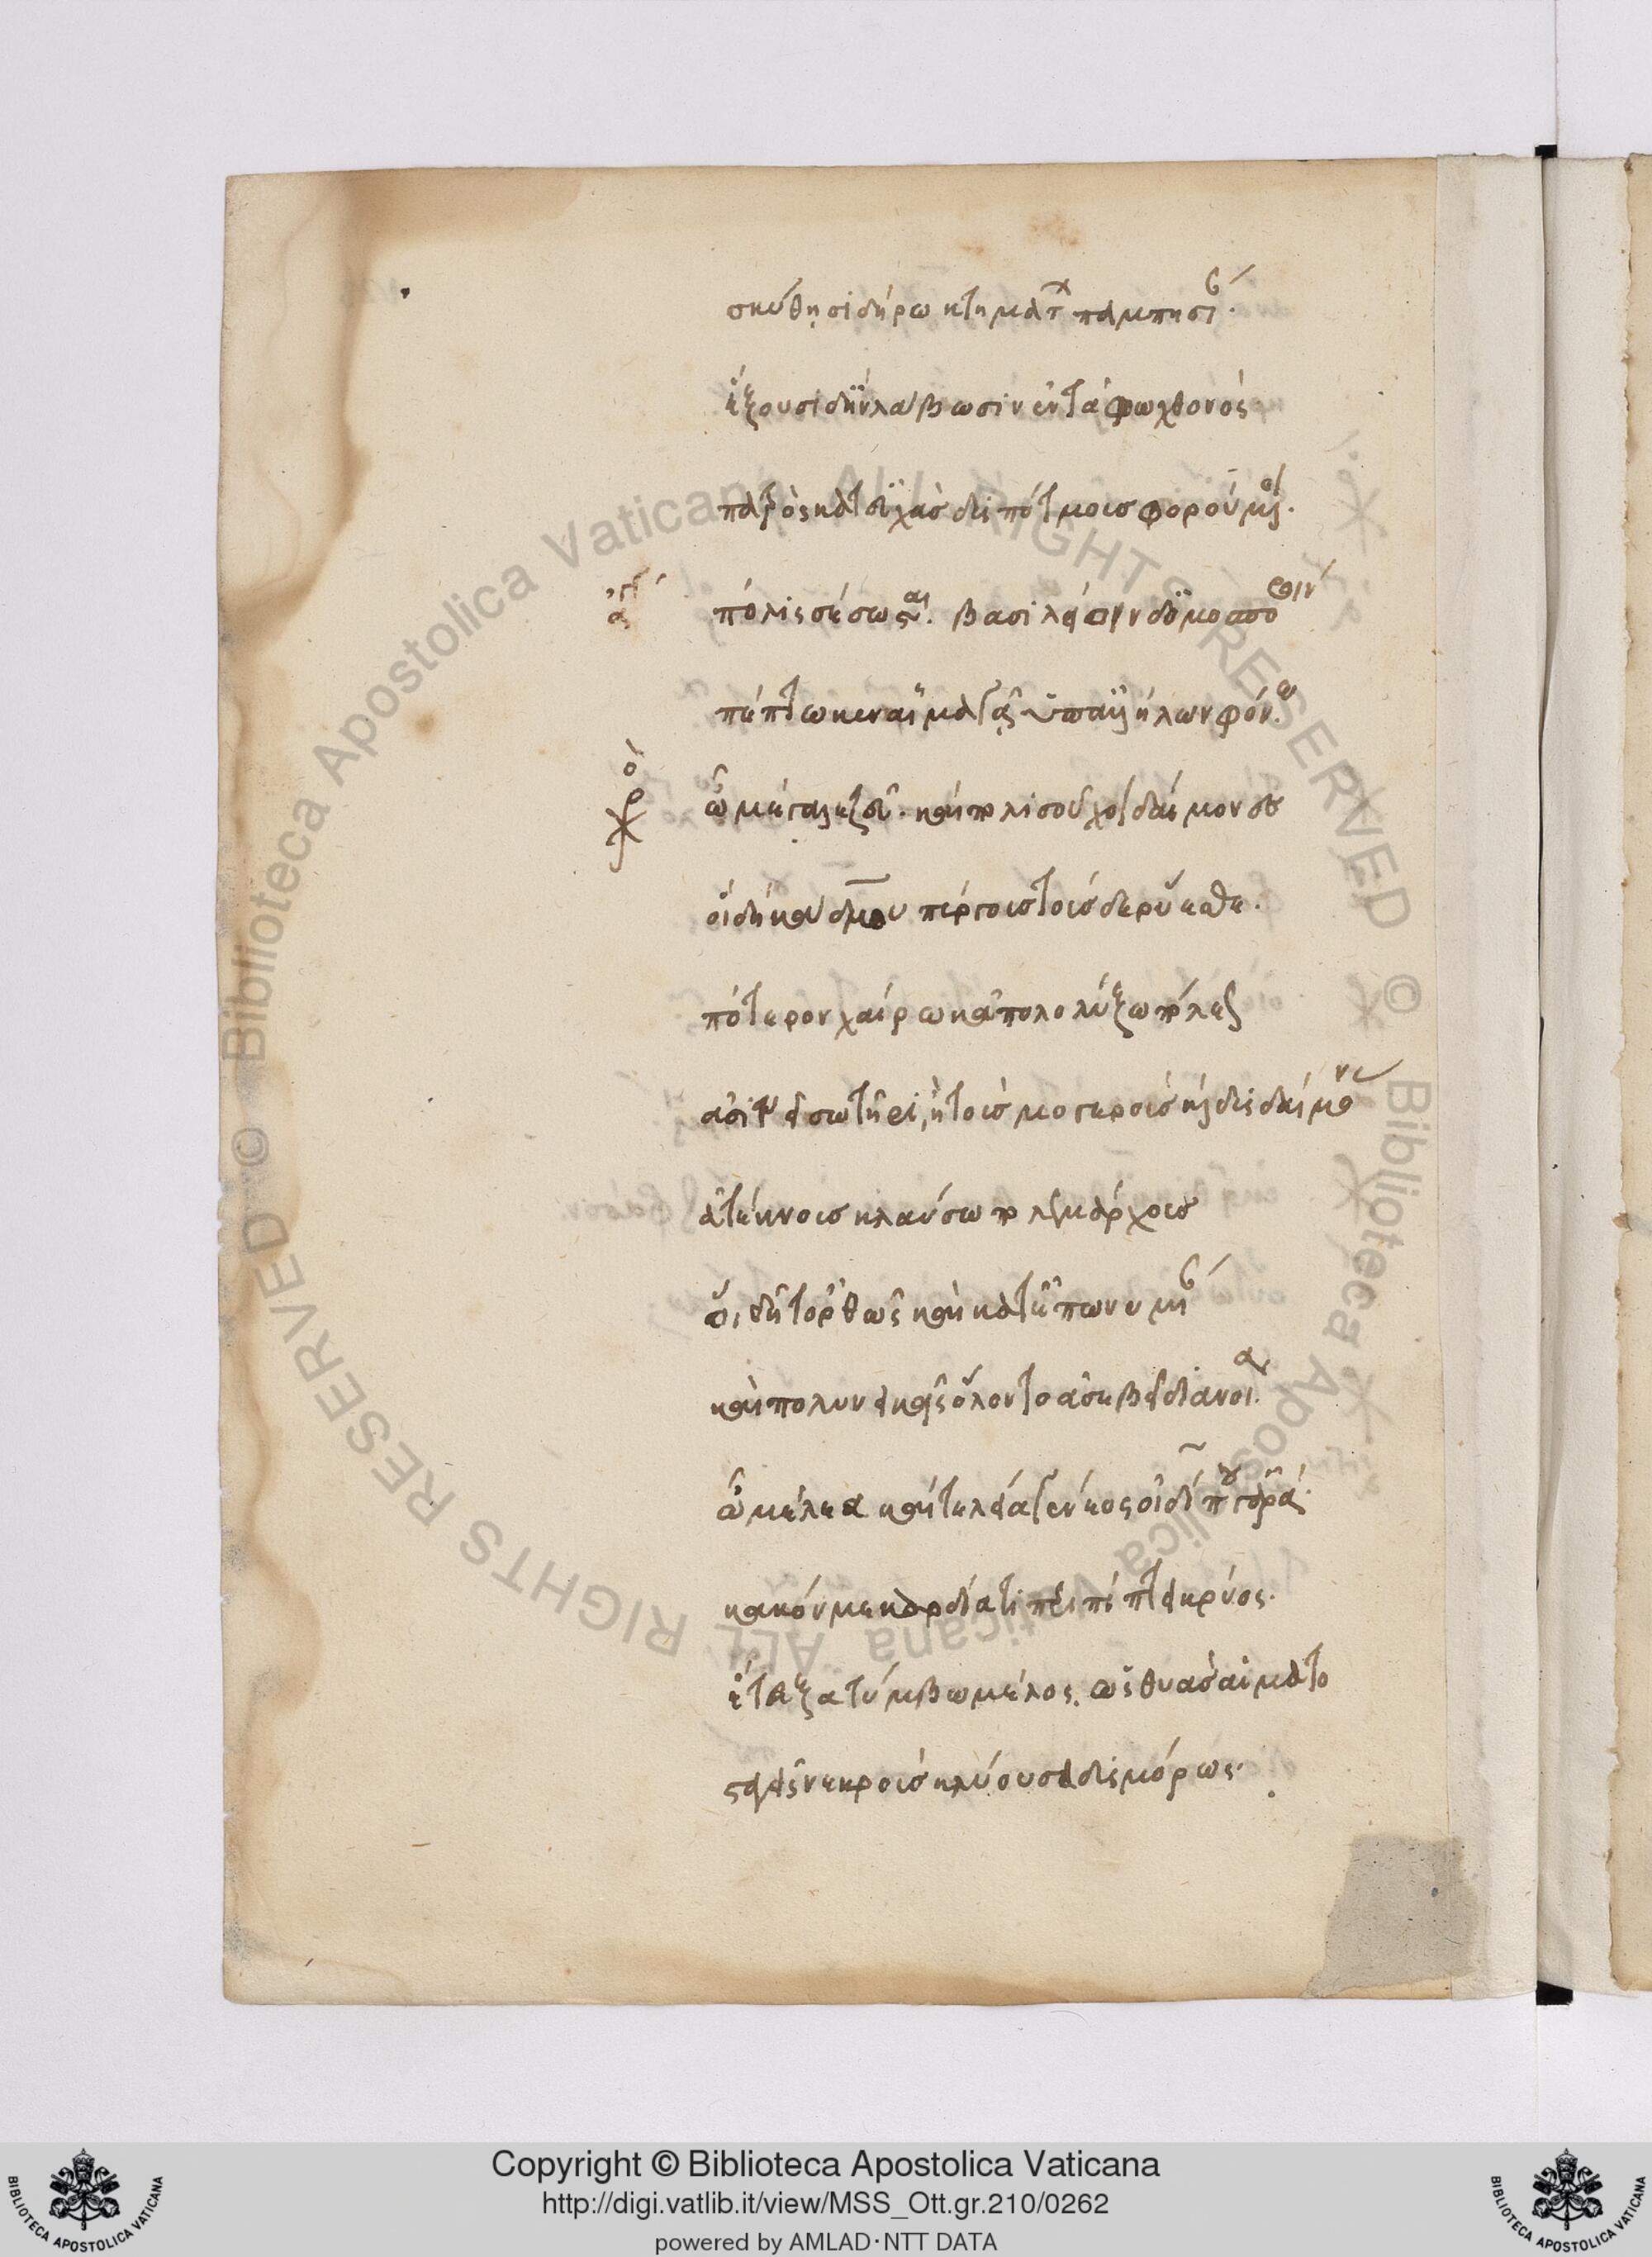 σκύθῃ σιδήρω κτημάτων παμπησίαν.
ἕξουσι δ' ἣν λάβωσιν ἐν τάφω χθονὸς
πατρὸς κατ' εὐχὰς δυσπότμους φορούμενοι.
πόλις σέσωσται. βασιλέοιν δ' ὁμοσπόροιν
πέπτωκεν αἷμα γαῖ' ὑπ' ἀλλήλων φόνω.
ὦ μέγα ζεῦ. καὶ πολισοῦχοι δαίμονες
οἳ δὴ κάδμου πύργους τούσδε ρύεσθε.
πότερον χαίρω κἀπολολύξω πόλεως
ἀσινεῖ σωτῆρι, ἢ τοὺς μογεροὺς καὶ δυσδαίμονας
ἀτέκνους κλαύσω πολεμάρχους
οἳ δῆτ' ὀρθῶς καὶ κατ' ἐπωνυμίαν
καὶ πολυνεικεῖς ὄλοντο ἀσεβεῖ διανοία.
ὦ μέλαινα καὶ τελεία γένεος οἰδίπου τ' ἀρά.
κακόν με καρδίαν τι περιπίπτει κρύος.
ἔτευξα τύμβω μέλος. ὡς θυὰς αἱματο
σταγεῖς νεκροὺς κλύουσα δυσμόρως.
Copyright © Biblioteca Apostolica Vaticana
http://digi.vatlib.it/view/MSS_Ott.gr.210/0262
powered by AMLAD·NTT DATA